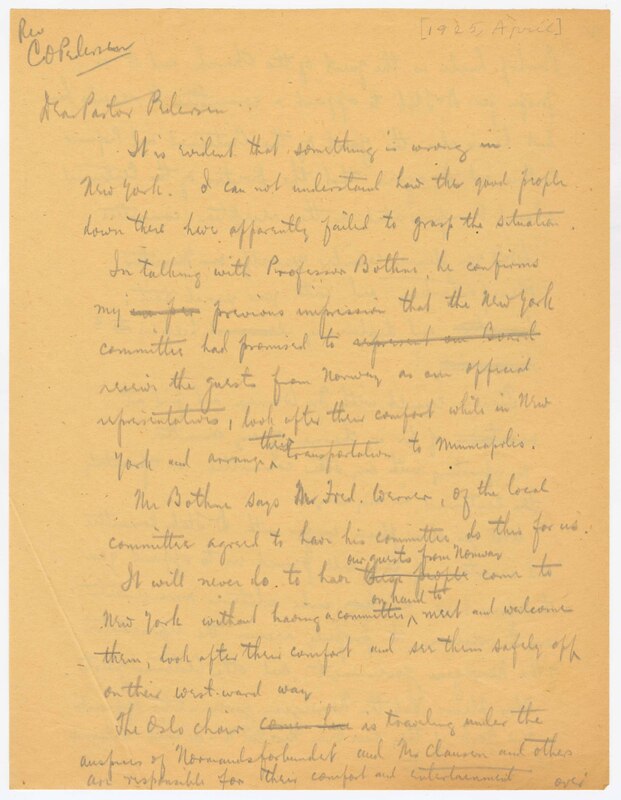 Rev
C O Pedersen
[1925, April]
Dear Pastor Pedersen
It is evident that something is wrong in
New York. I can not understand how the good people
down there have apparently failed to grasp the situation.
In talking with Professor Bothne, he confirms
my previous impression that the New York
committee had promised to represent our Board
receive the guests from Norway as our official
representatives, look after their comfort while in New
York and arrange their transportation to Minneapolis.
Mr Bothne says Mr Fred. Werner, of the local
committee agreed to have his committee do this for us.
our guests from Norway
It will never do to have these people come to
on hand to
New York without having a committee meet and welcome
them, look after their comfort and see them safely off
on their west-ward way
The Oslo choir is traveling under the
auspices of Normandsforbundet and Mr Clausen and others
are responsible for their comfort and entertainment over